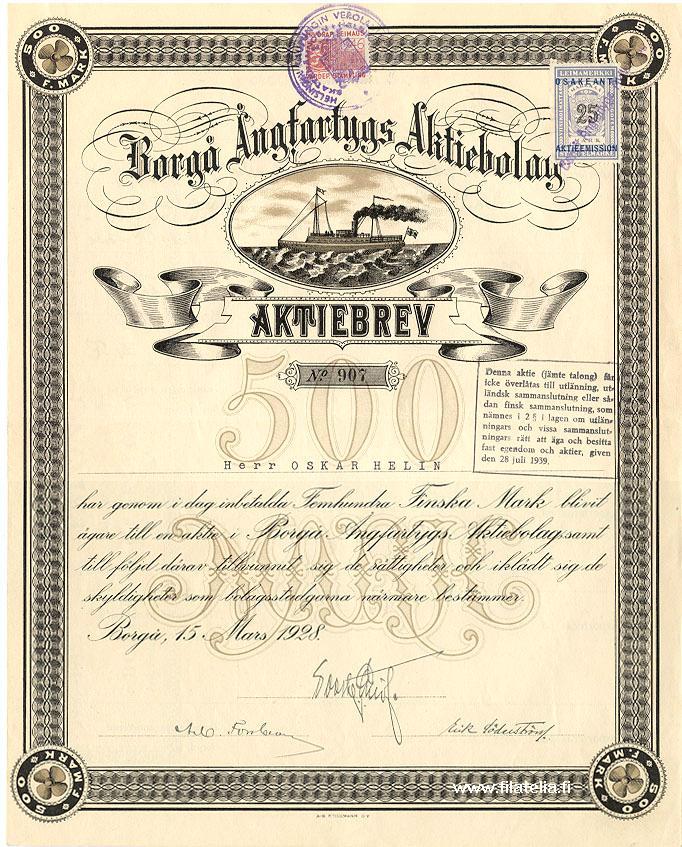 500
F. MARK
500
F. MARK
LEIMAMERKKI
OSAKEANTI
25
AKTIEEMISSION
Borgå Ångfartygs Aktiebolag
AKTIEBREV
No 907
500
Denna aktie (jämte talong) får
icke överlåtas till utlänning, ut-
ländsk sammanslutning eller så-
dan finsk sammanslutning, som
nämnes i 2 § i lagen om utlän-
ningars och vissa sammanslut-
ningars rätt att äga och besitta
fast egendom och aktier, given
den 28 juli 1939.
Herr OSKAR HELIN
har genom i dag inbetalda Femhundra Finska Mark blivit
ägare till en aktie i Borgå Ångfartygs Aktiebolag, samt
till följd därav tillvunnit sig de rättigheter och iklädt sig de
skyldigheter som bolagsstadgarna närmare bestämmer.
MARK
Borgå, 15 Mars 1928.
Erik Söderström
500
F. MARK
500
F. MARK
www.filatelia.fi